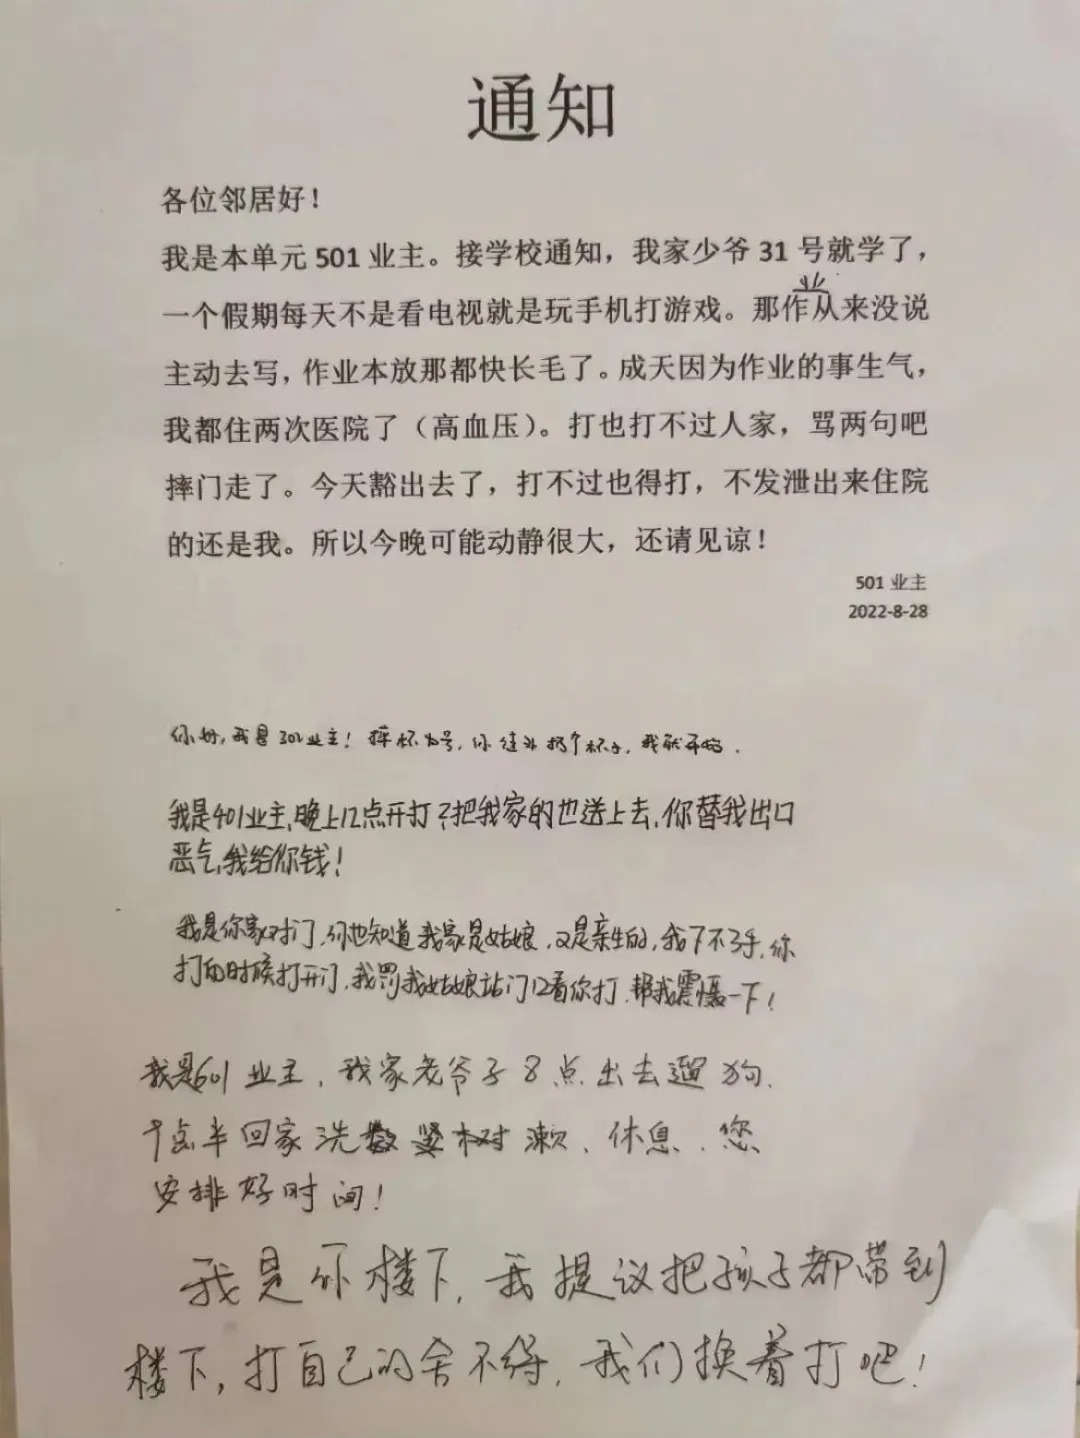 通知
各位邻居好！
我是本单元 501 业主。接学校通知，我家少爷 31 号就学了，
业
一个假期每天不是看电视就是玩手机打游戏。那作从来没说
主动去写，作业本放那都快长毛了。成天因为作业的事生气，
我都住两次医院了（高血压）。打也打不过人家，骂两句吧
摔门走了。今天豁出去了，打不过也得打，不发泄出来住院
的还是我。所以今晚可能动静很大，还请见谅！
501 业主
2022-8-28
你好，我是302业主！摔杯为号，你往外扔个杯子，我就开始.
我是401业主，晚上12点开打？把我家的也送上去，你替我出口
恶气，我给你钱！
我是你家对门，你也知道我家是姑娘，又是亲生的，我下不了手，你
打的时候打开门，我罚我姑娘站门口看你打，帮我震慑一下！
我是601业主，我家老爷子8点出去遛狗，
十点半回家洗漱、休息，您
安排好时间！
我是你楼下，我提议把孩子都带到
楼下，打自己的舍不得，我们换着打吧！